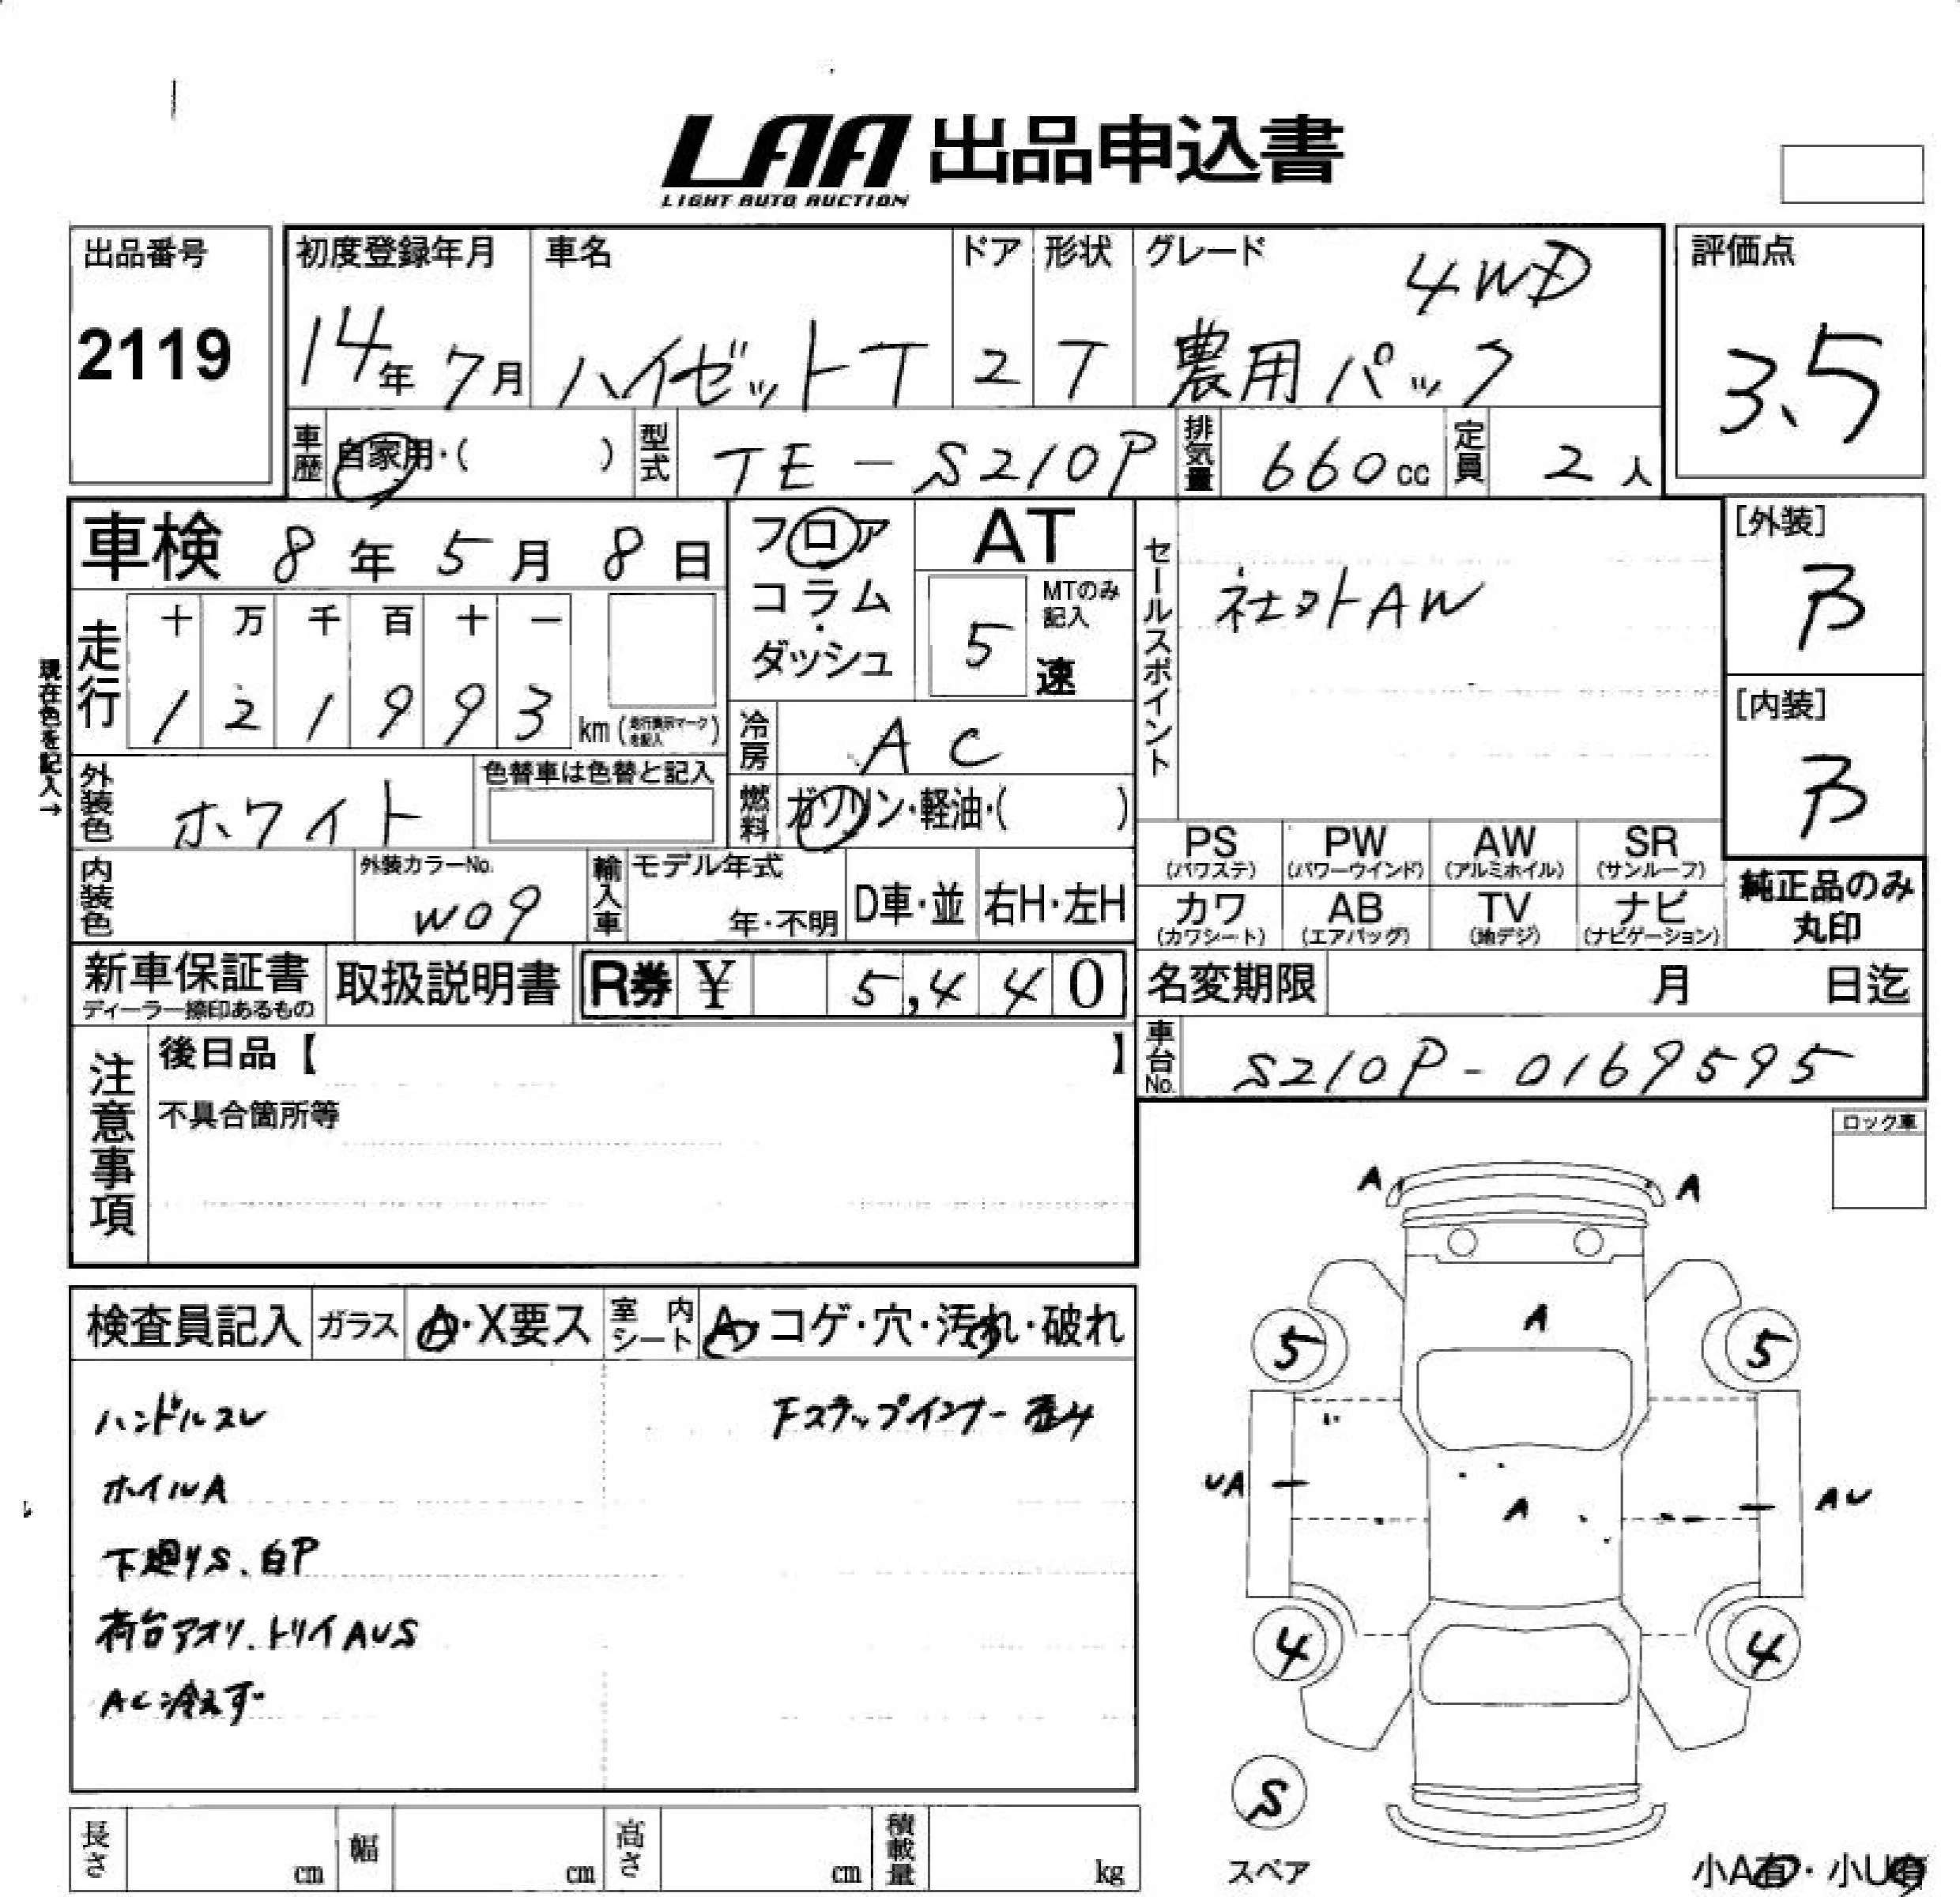 LAA 出品申込書
LIGHT AUTO AUCTION
出品番号
2119
初度登録年月
14年 7月
車名
ハイゼットT
ドア
2
形状
T
グレード
4WD
農用パック
評価点
3.5
車歴 自家用・( )
型式 TE-S210P
排気量 660cc
定員 2人
車検 8年 5月 8日
現在色を記入→
走行
十 万 千 百 十 一
1 2 1 9 9 3 km (走行表示マークを記入)
フロア
コラム・
ダッシュ
AT
5 速
MTのみ記入
冷房 AC
燃料 ガソリン・軽油・( )
セールスポイント
社外AW
[外装]
B
[内装]
B
外装色 ホワイト
色替車は色替と記入
内装色
外装カラーNo.
W09
輸入車
モデル年式
年・不明
D車・並
右H・左H
PS (パワステ)
PW (パワーウインド)
AW (アルミホイル)
SR (サンルーフ)
カワ (カワシート)
AB (エアバッグ)
TV (地デジ)
ナビ (ナビゲーション)
純正品のみ
丸印
新車保証書
ディーラー捺印あるもの
取扱説明書
R券 ¥ 5,440
名変期限 月 日迄
車台No. S210P-0169595
注意事項
後日品【 】
不具合箇所等
ロック車
検査員記入
ガラス A・X要ス
室内シート A・コゲ・穴・汚れ・破れ
ハンドルスレ
Fステップインナー歪み
ホイルA
下廻りS、白P
荷台アオリ、トリイAUS
AC冷えず
A A
A
5 5
UA A AU
4 4
S
スペア
小A有・小U有
長さ cm
幅 cm
高さ cm
積載量 kg